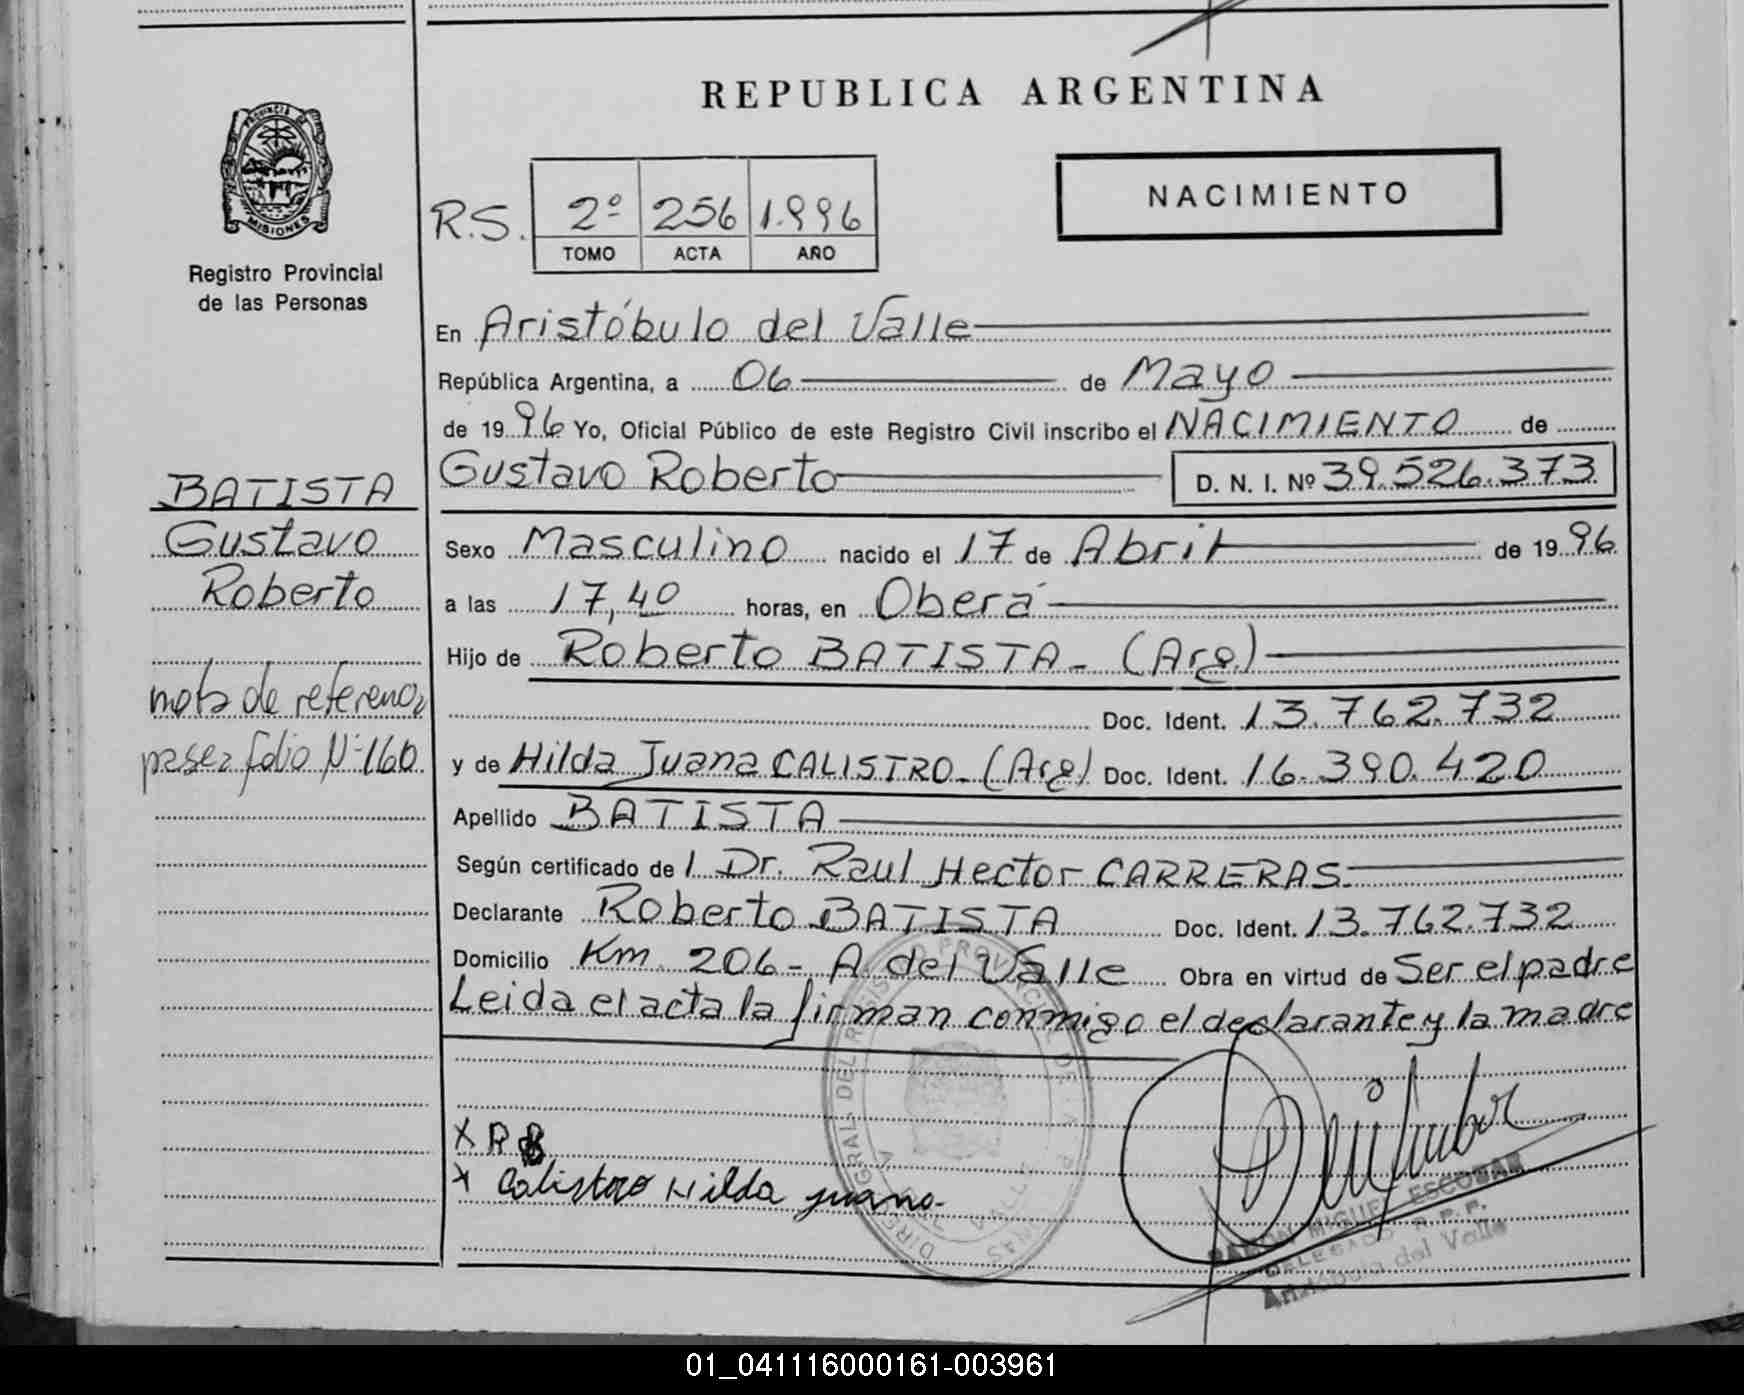 REPUBLICA ARGENTINA
PROVINCIA DE
MISIONES
Registro Provincial
de las Personas
NACIMIENTO
R.S. 2º 256 1.996
TOMO ACTA AÑO
En Aristóbulo del Valle
República Argentina, a 06 de Mayo
de 1996 Yo, Oficial Público de este Registro Civil inscribo el NACIMIENTO de
Gustavo Roberto D. N. I. Nº 39.526.373
BATISTA
Gustavo
Roberto
nota de referencia
pasea folio Nº 160
Sexo Masculino nacido el 17 de Abril de 1996
a las 17,40 horas, en Oberá
Hijo de Roberto BATISTA - (Arg.)
Doc. Ident. 13.762.732
y de Hilda Juana CALISTRO - (Arg) Doc. Ident. 16.390.420
Apellido BATISTA
Según certificado de l Dr. Raul Hector CARRERAS.
Declarante Roberto BATISTA Doc. Ident. 13.762.732
Domicilio Km. 206 - A. del Valle Obra en virtud de Ser el padre
Leida el acta la firman conmigo el declarante y la madre
X R B
x Calistro Hilda juana.
RAMON MIGUEL ESCOBAR
DELEGADO R.P.P.
Aristóbulo del Valle
01_041116000161-003961